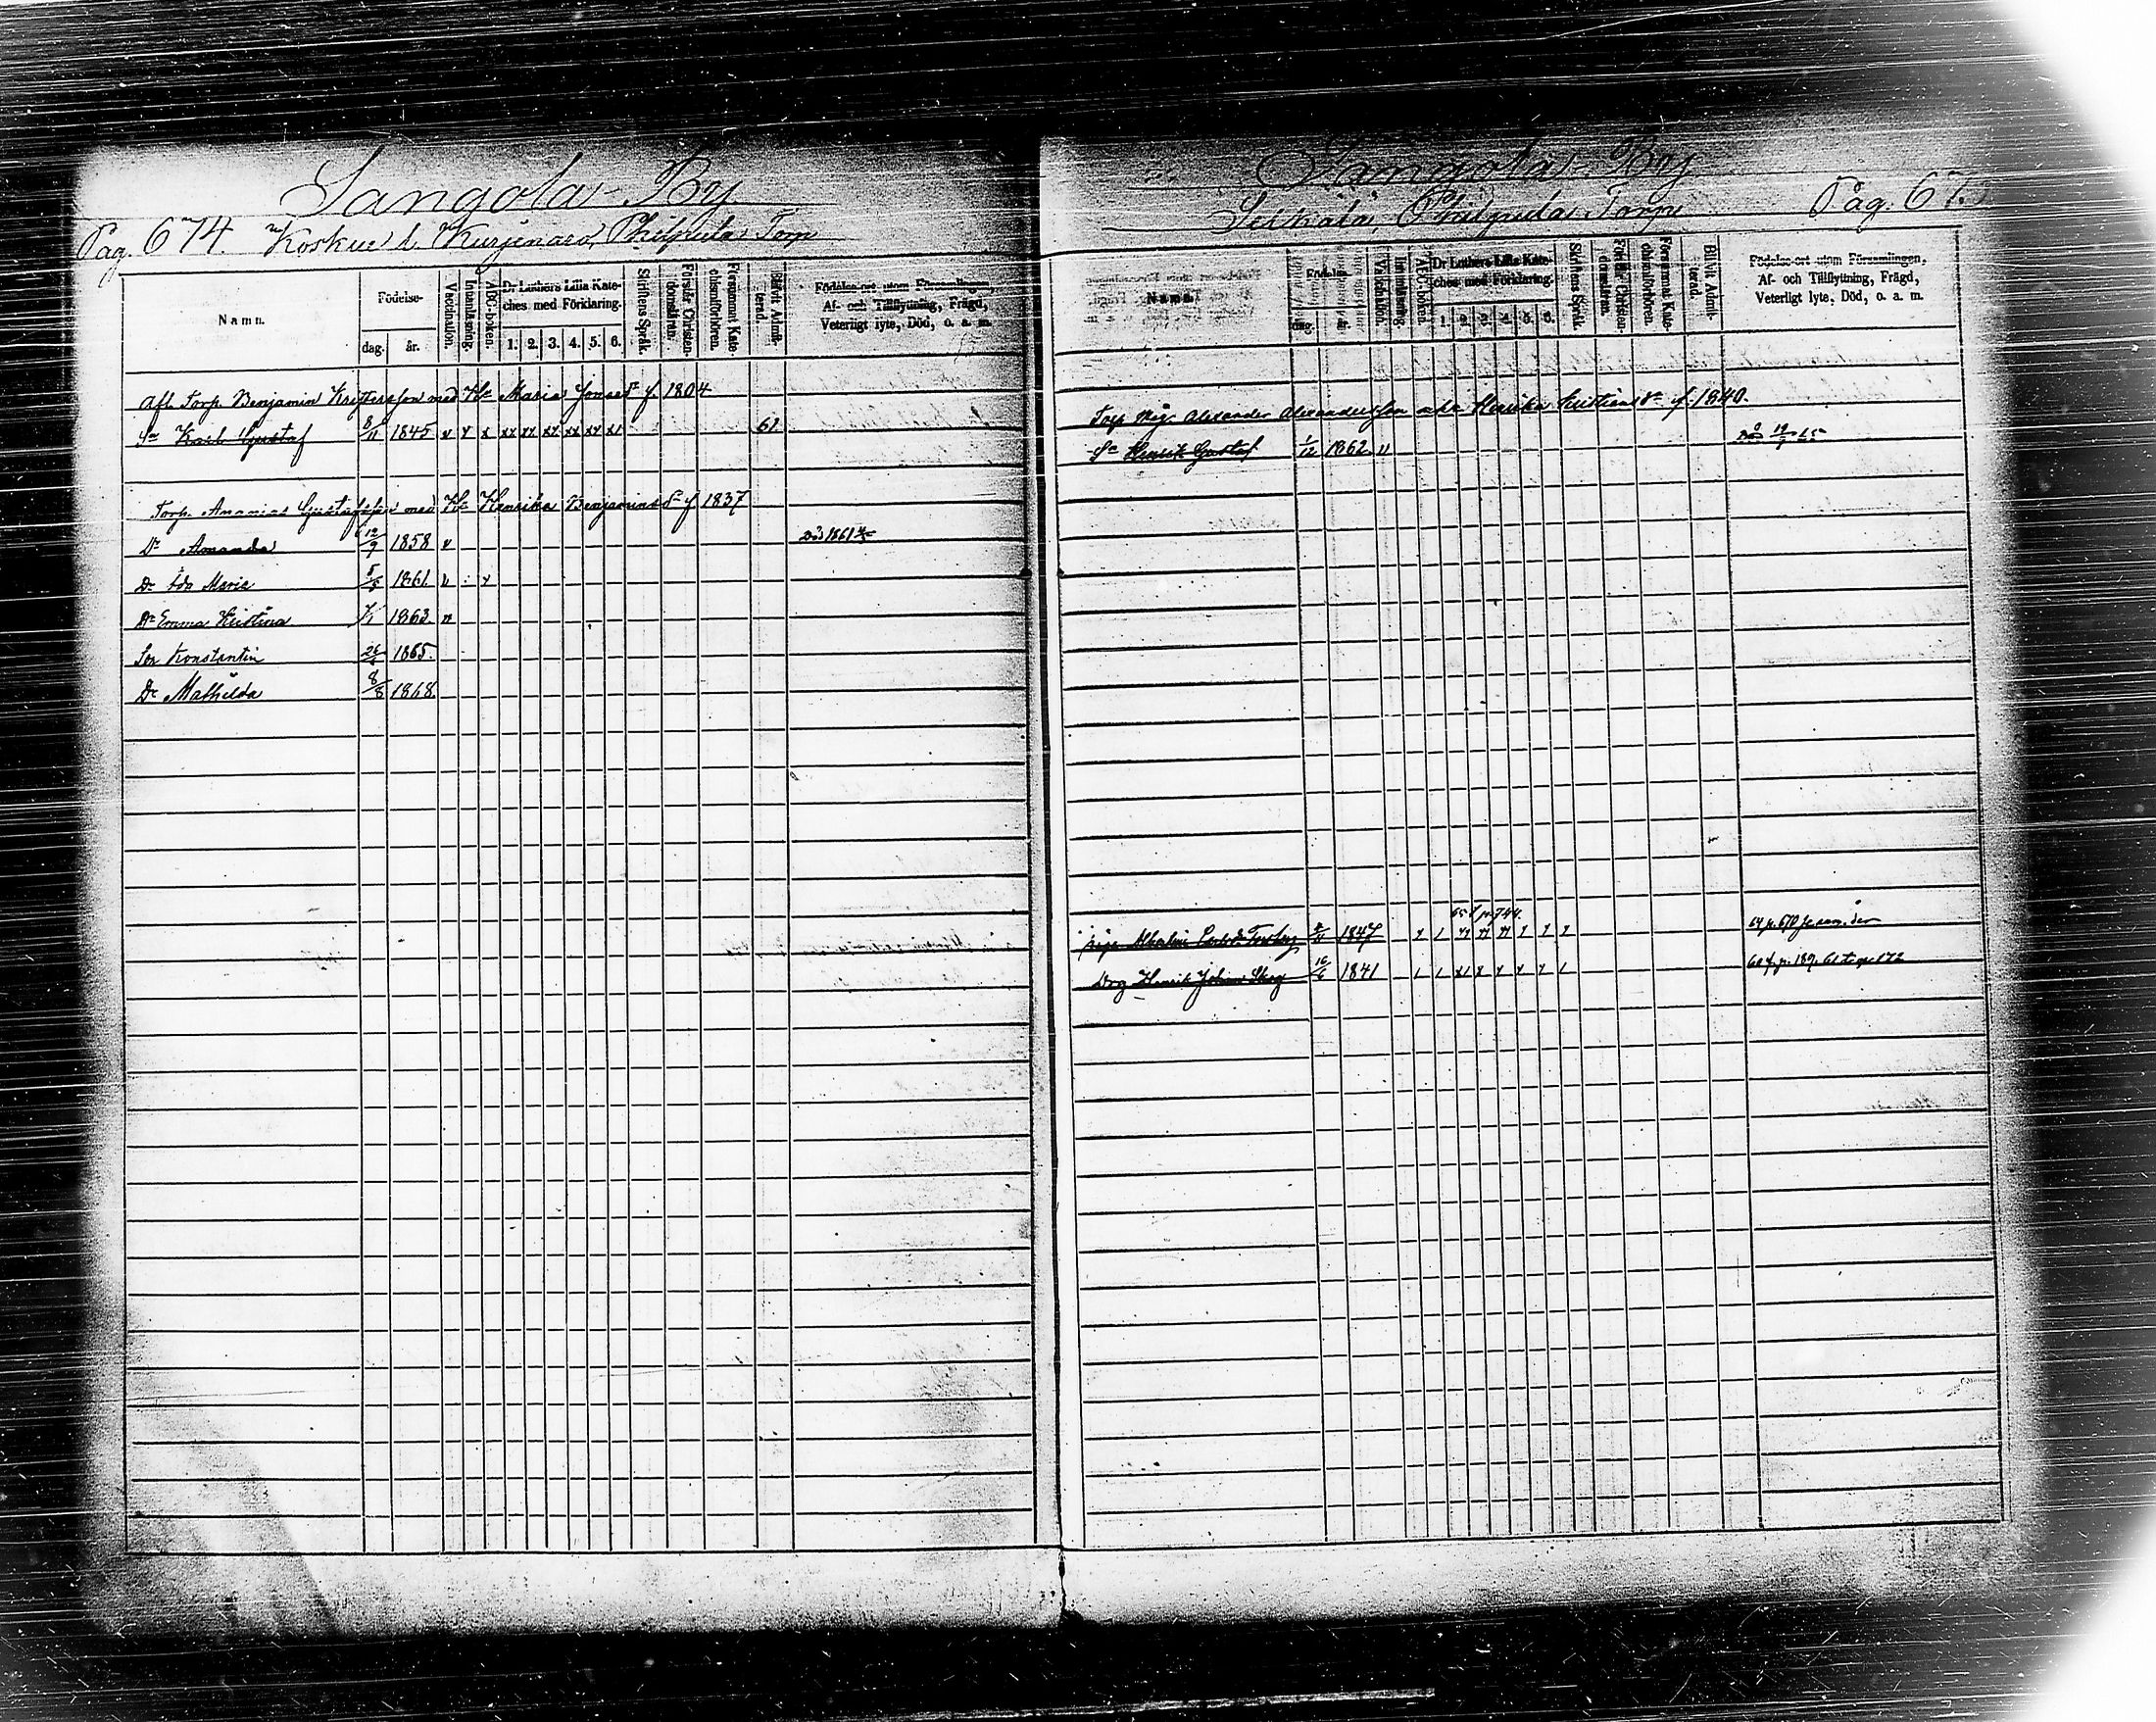 Sangola - By
Pag. 674. Koskue l. Kurjenaro, Philpula Torp
Namn.
Födelse-
dag. år.
Vaccination.
Innanläsning.
ABC-boken.
Dr Luthers Lilla Kate-
ches med Förklaring.
1. 2. 3. 4. 5. 6.
Skriftens Språk.
Förstår Christen-
domsläran.
Försummat Kate-
chismiförhören.
Blifvit Admit-
terad.
Födelse-ort utom Församlingen,
Af- och Tillflyttning, Frägd,
Veterligt lyte, Död, o. a. m.
Afl. Torp. Benjamin Kristersson med Ha Maria Jonaed:r f. 1804
Sn Karl Gustaf 8/11 1845 v x x xx xx xx xx xx x1 61.
Torp. Ananias Gustafsson med Ha Henrika Benjamins dr f 1837
Dr Amanda 12/9 1858 v Död 1861
Dr Ida Maria 5/5 1861 v x
Dr Emma Kristina 1863 v
Son Konstantin 26 1865.
Dr Mathilda 8/8 1868
Sangola - By
Philpula Torp Pag. 67
Namn.
Födelse-
dag. år.
Vaccination.
Innanläsning.
ABC-boken.
Dr Luthers Lilla Kate-
ches med Förklaring.
1. 2. 3. 4. 5. 6.
Skriftens Språk.
Förstår Christen-
domsläran.
Försummat Kate-
chismiförhören.
Blifvit Admit-
terad.
Födelse-ort utom Församlingen,
Af- och Tillflyttning, Frägd,
Veterligt lyte, Död, o. a. m.
Torp Alexander Alexandersson Henrika Kristians dr f. 1840.
Sn Henrik Gustaf 1/12 1862 v Död 19 65
65 f p. 744.
1847 64 p. 670
Drg Henrik Johan Skog 16/6 1841 60 f. p. 189. 61 t. p. 172